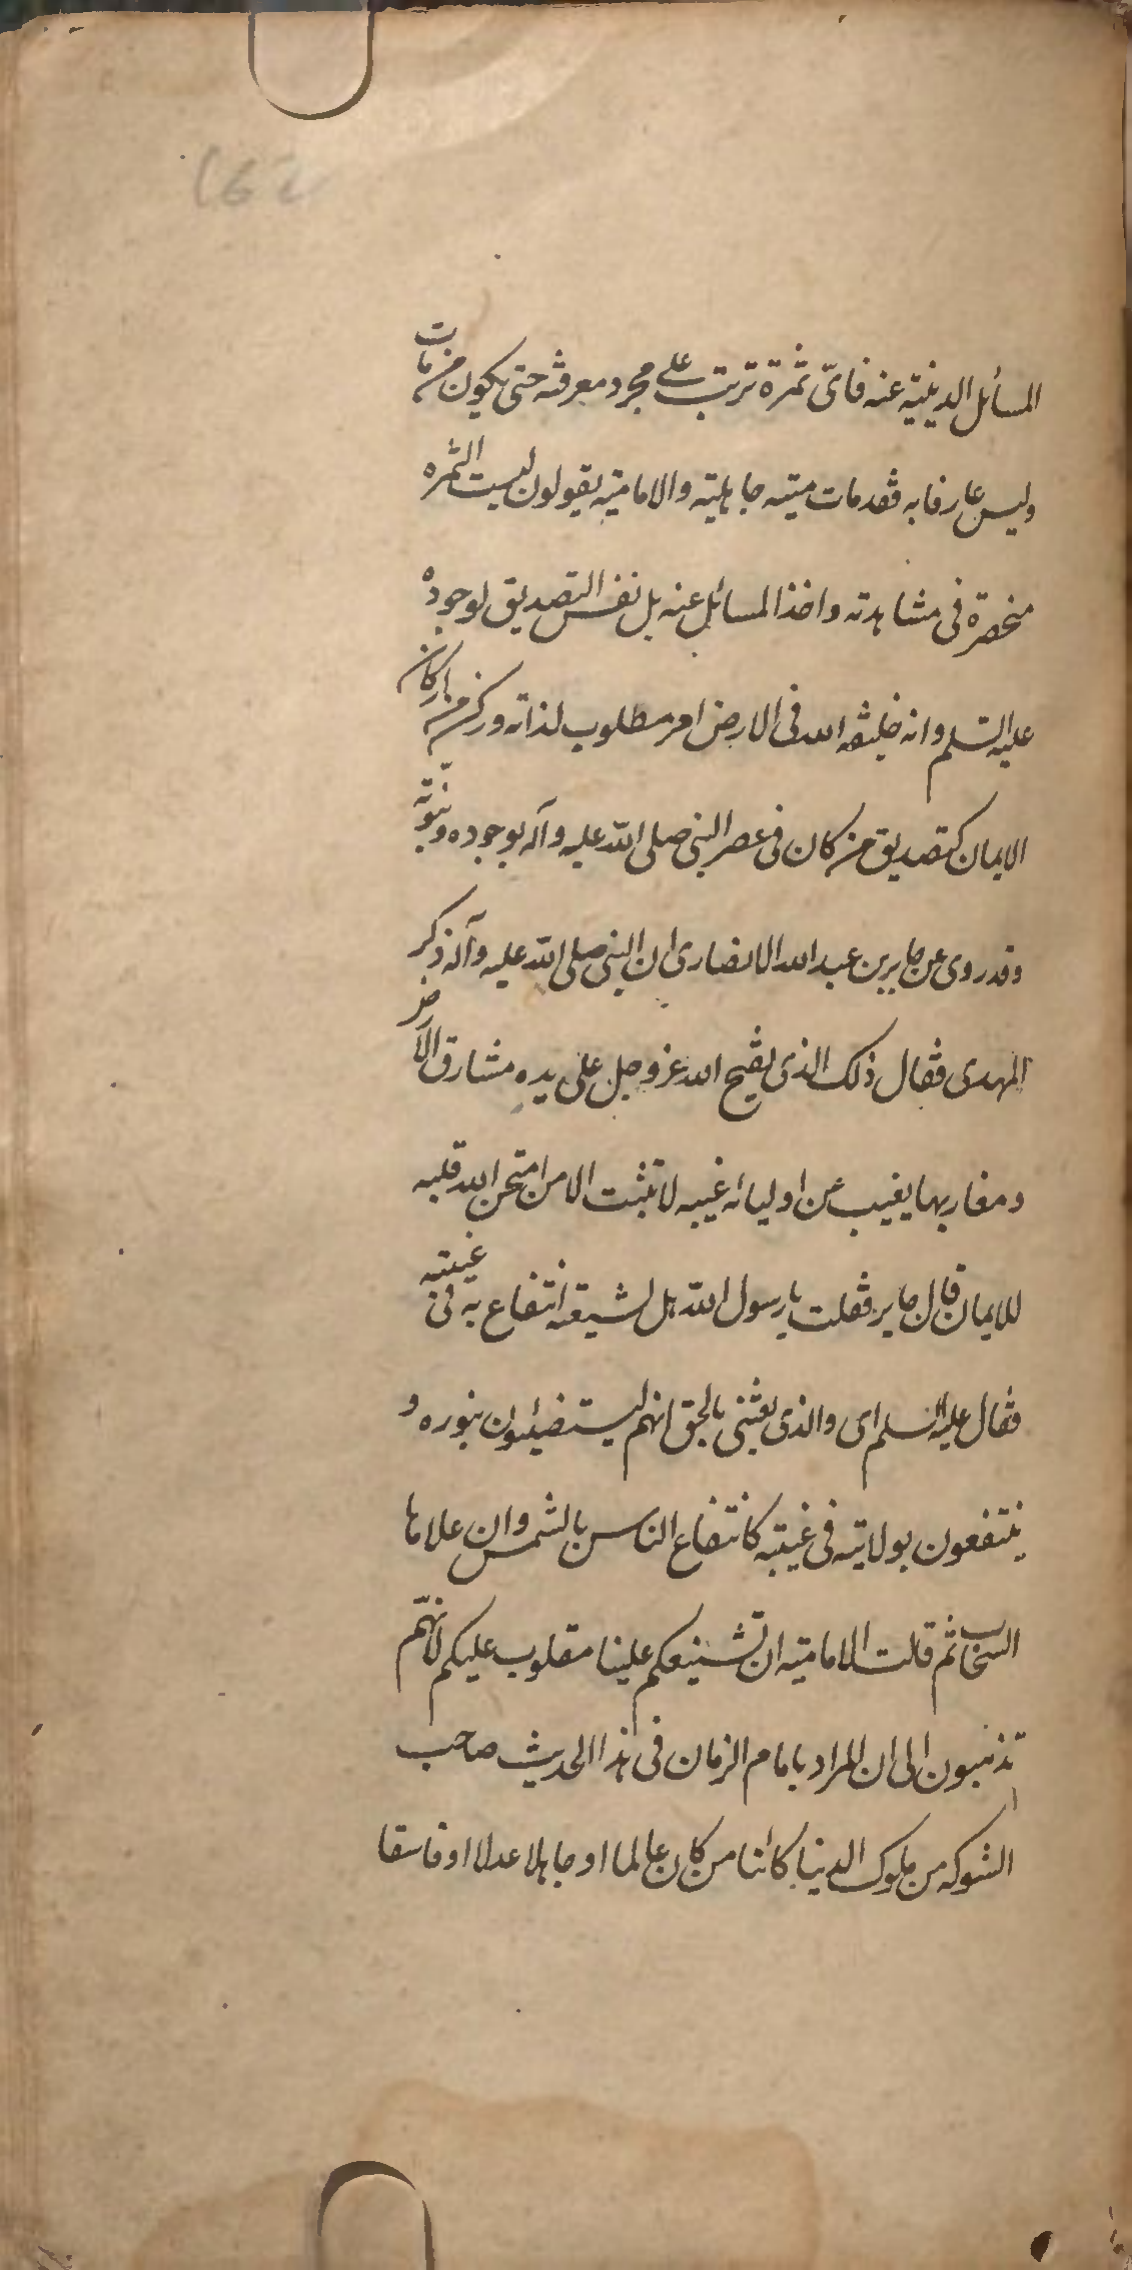 162
المسائل الدينية عنه فاىّ ثمرة ترتب على مجرد معرفته حتى يكون من مات
وليس عارفا به فقد مات ميتة جاهلية والامامية يقولون ليست الثمرة
منحصرة فى مشاهدته واخذ المسائل عنه بل نفس التصديق لوجوده
عليه السلم وانه خليفة الله فى الارض امر مطلوب لذاته وركن من اركان
الايمان كتصديق من كان فى عصر النبى صلى الله عليه وآله بوجوده ونبوته
وقد روى عن جابر بن عبد الله الانصارى ان النبى صلى الله عليه وآله ذكر
المهدى فقال ذلك الذى يفتح الله عز وجل على يده مشارق الارض
ومغاربها يغيب عن اوليائه غيبه لا تثبت الا من امتحن الله قلبه
للايمان قال جابر فقلت يا رسول الله هل لشيعته انتفاع به فى غيبته
فقال عليه السلم اى والذى بعثنى بالحق انهم ليستضيئون بنوره و
ينتفعون بولايته فى غيبته كانتفاع الناس بالشمس وان علاها
السحاب ثم قالت الامامية ان تشنيعكم علينا مقلوب عليكم لانهم
تذهبون الى ان المراد بامام الزمان فى هذا الحديث صاحب
الشوكه من ملوك الدنيا كائنا من كان عالما او جاهلا عدلا او فاسقا